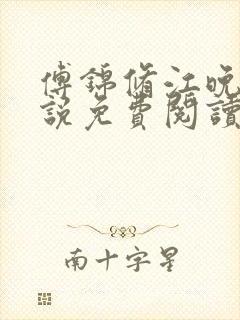 傅锦脩江晚
說免費閱讀
南十字星